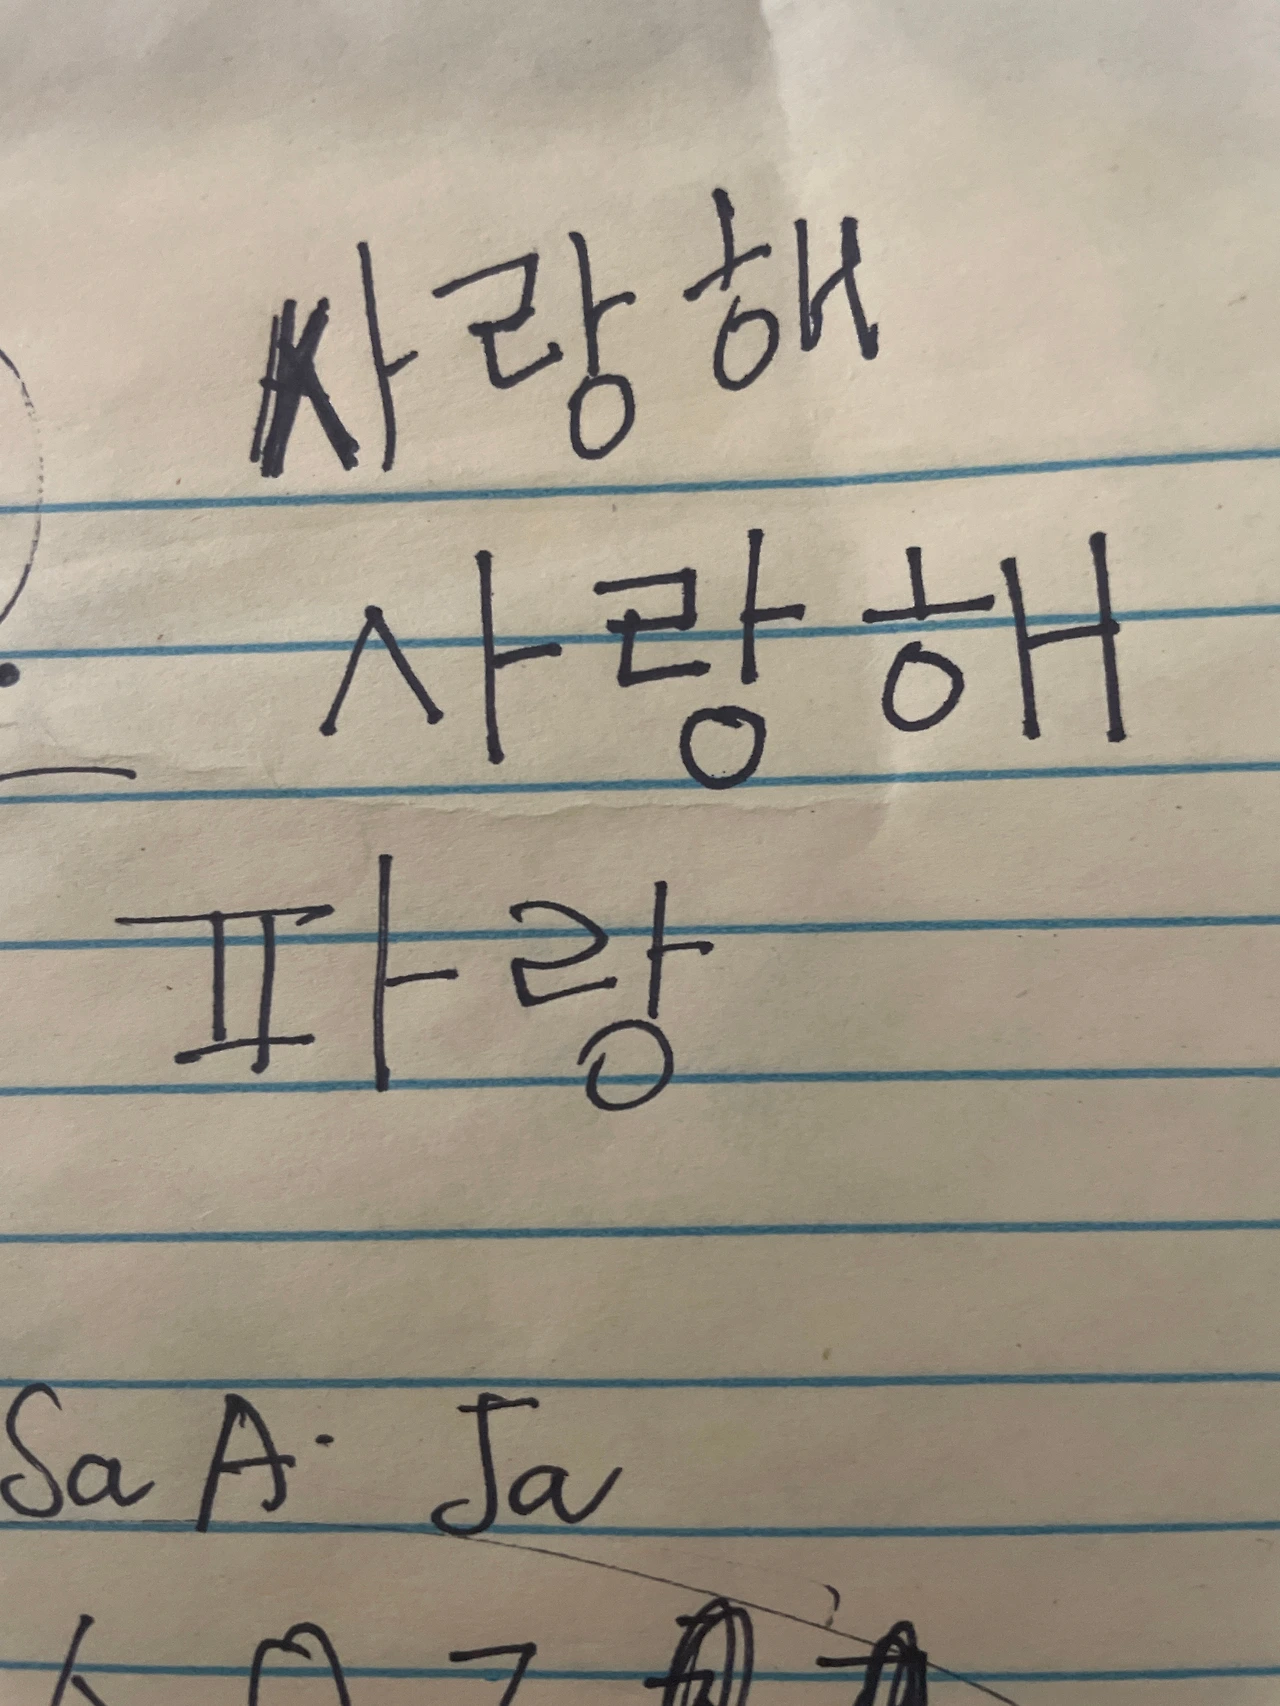 사랑해
사랑해
파랑
Sa A. Ja